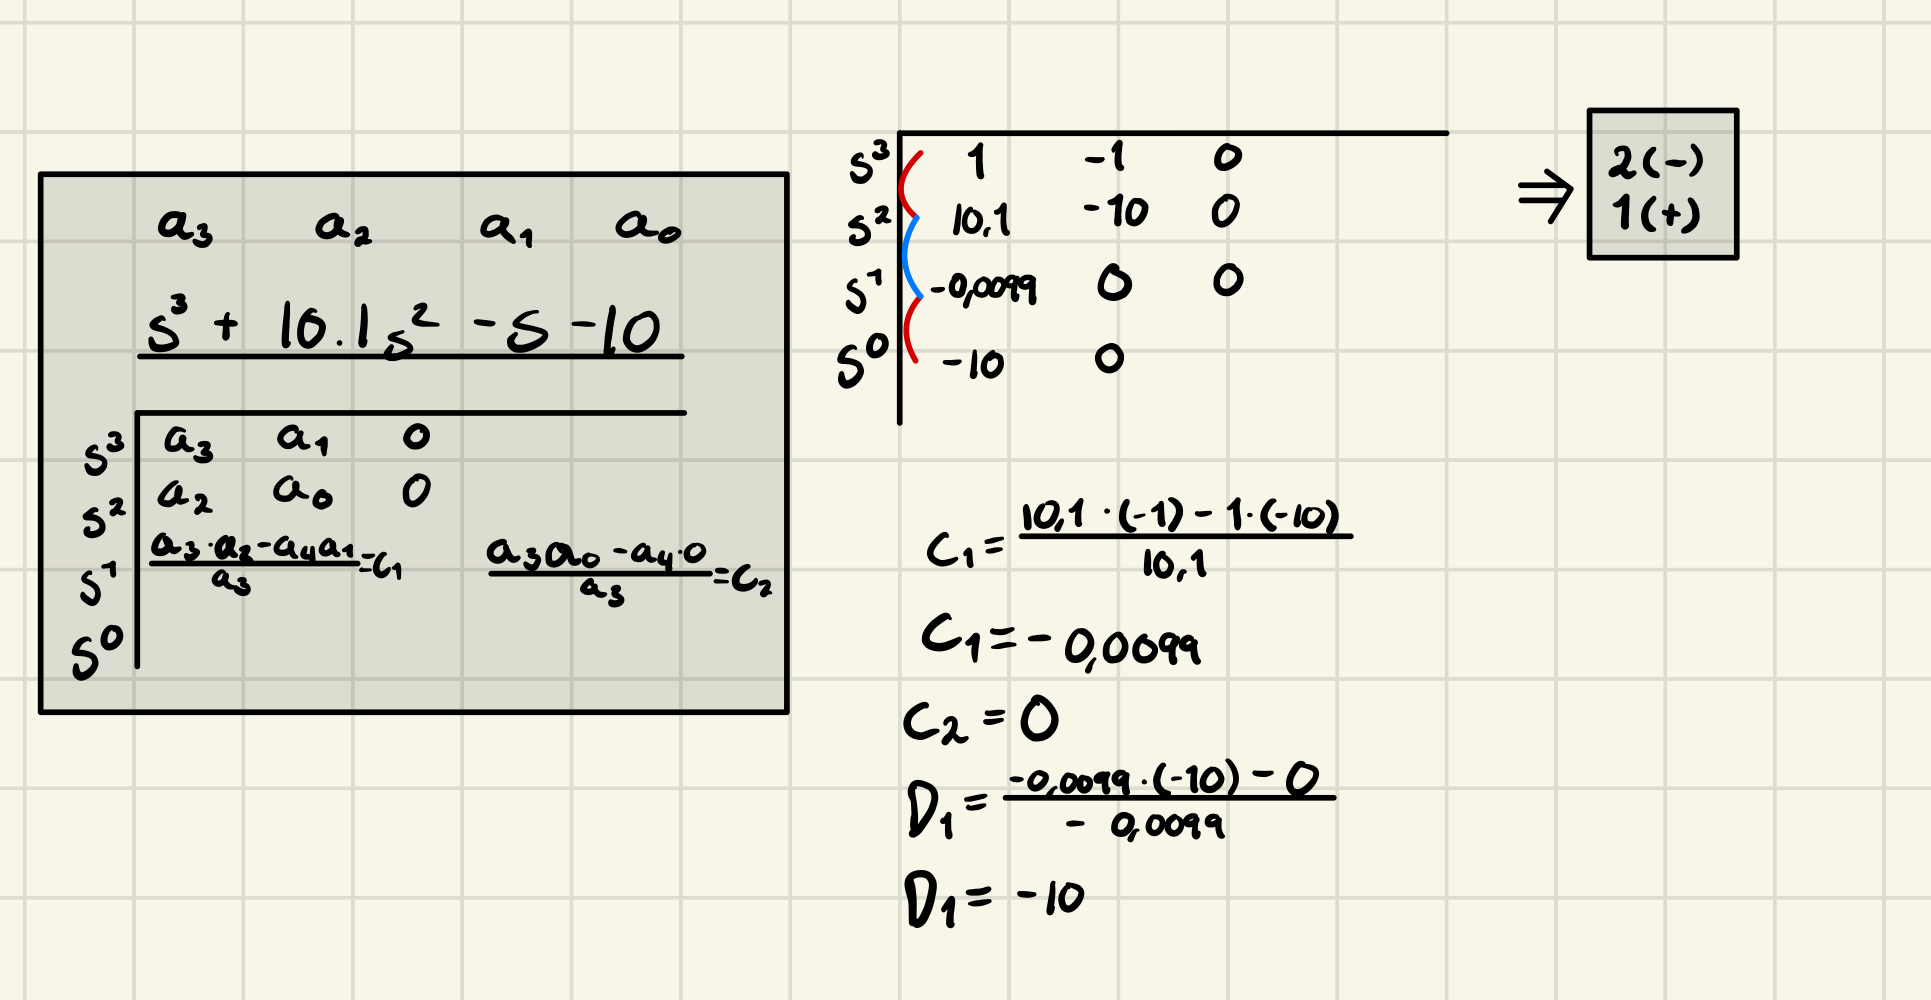 a₃ a₂ a₁ a₀
s³ + 10.1s² - s - 10
s³ a₃ a₁ 0
s² a₂ a₀ 0
s¹ (a₃·a₂-a₄a₁)/a₃ = C₁ (a₃a₀-a₄·0)/a₃ = C₂
s⁰
s³ 1 -1 0
s² 10,1 -10 0
s¹ -0,0099 0 0
s⁰ -10 0
⇒ 2(-)
1(+)
C₁ = (10,1·(-1) - 1·(-10))/10,1
C₁ = -0,0099
C₂ = 0
D₁ = (-0,0099·(-10) - 0)/(-0,0099)
D₁ = -10